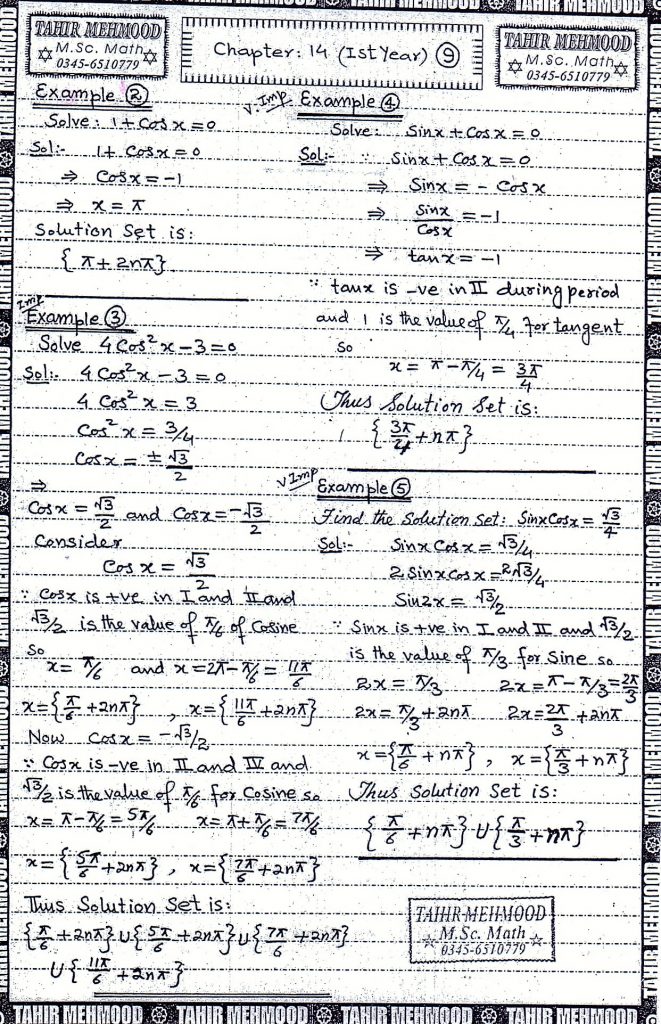 TAHIR MEHMOOD
M.Sc. Math
0345-6510779
Chapter: 14 (Ist Year) ⑨
TAHIR MEHMOOD
M.Sc. Math
0345-6510779
Example ②
Solve: 1 + Cos x = 0
Sol:- 1 + Cos x = 0
⇒ Cos x = -1
⇒ x = π
Solution Set is:
{π + 2nπ}
Imp
Example ③
Solve 4 Cos² x - 3 = 0
Sol:- 4 Cos² x - 3 = 0
4 Cos² x = 3
Cos² x = 3/4
Cos x = ± √3/2
⇒
Cos x = √3/2 and Cos x = -√3/2
Consider
Cos x = √3/2
∵ Cos x is +ve in I and II and
√3/2 is the value of π/6 of Cosine
So
x = π/6 and x = 2π - π/6 = 11π/6
x = {π/6 + 2nπ} , x = {11π/6 + 2nπ}
Now Cos x = -√3/2
∵ Cos x is -ve in II and IV and
√3/2 is the value of π/6 for Cosine so
x = π - π/6 = 5π/6 x = π + π/6 = 7π/6
x = {5π/6 + 2nπ} , x = {7π/6 + 2nπ}
Thus Solution Set is:
{π/6 + 2nπ} ∪ {5π/6 + 2nπ} ∪ {7π/6 + 2nπ}
∪ {11π/6 + 2nπ}
V. Imp Example ④
Solve: Sin x + Cos x = 0
Sol:- ∵ Sin x + Cos x = 0
⇒ Sin x = - Cos x
⇒ Sin x/Cos x = -1
⇒ tan x = -1
∵ tan x is -ve in II during period
and 1 is the value of π/4 for tangent
So
x = π - π/4 = 3π/4
Thus Solution Set is:
{3π/4 + nπ}
V Imp Example ⑤
Find the Solution set: Sin x Cos x = √3/4
Sol:- Sin x Cos x = √3/4
2 Sin x Cos x = 2√3/4
Sin 2x = √3/2
∵ Sin x is +ve in I and II and √3/2
is the value of π/3 for Sine so
2x = π/3 2x = π - π/3 = 2π/3
2x = π/3 + 2nπ 2x = 2π/3 + 2nπ
x = {π/6 + nπ} , x = {π/3 + nπ}
Thus Solution Set is:
{π/6 + nπ} ∪ {π/3 + nπ}
TAHIR MEHMOOD
M.Sc. Math
0345-6510779
TAHIR MEHMOOD TAHIR MEHMOOD TAHIR MEHMOOD TAHIR MEHMOOD